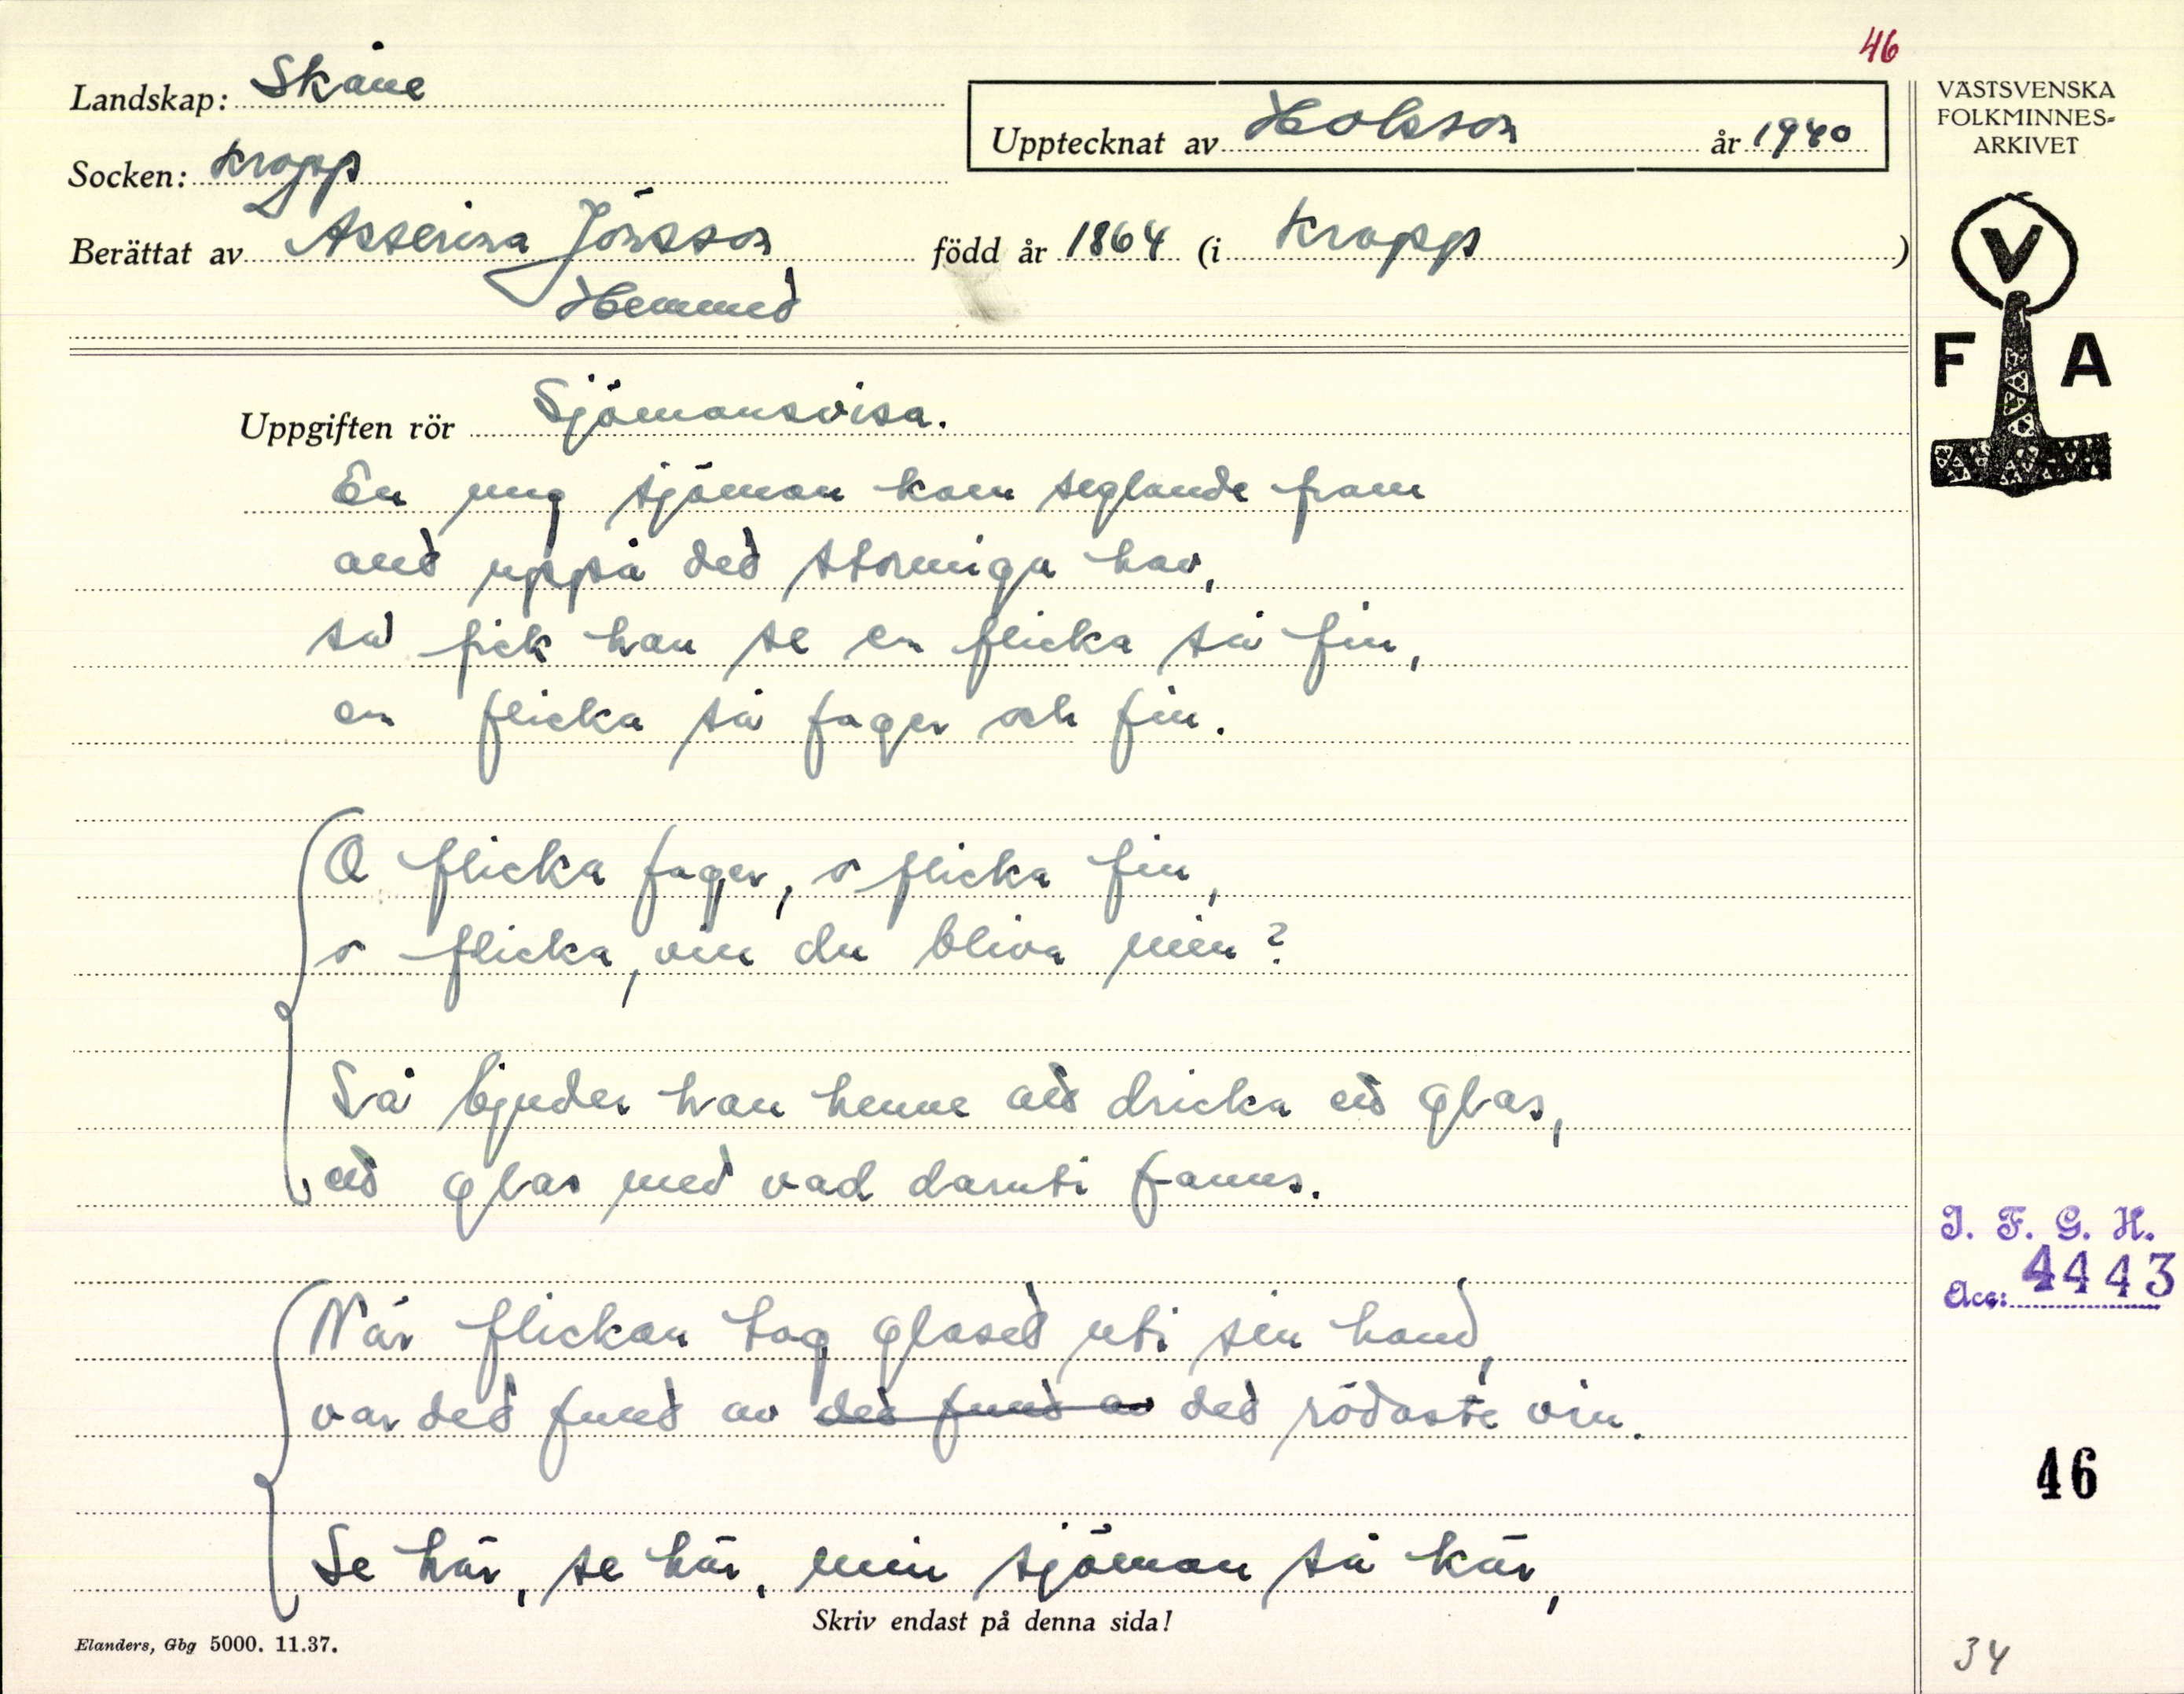 46
Landskap: Skåne
Socken: Kropp
Upptecknat av HOlsson år 1940
Berättat av Asserina Jönsson född år 1864 (i Kropp)
Hemmet
VÄSTSVENSKA
FOLKMINNES-
ARKIVET
V
F A
Uppgiften rör Sjömansvisa.
En ung sjöman kom seglande fram
allt uppå det stormiga hav,
så fick han se en flicka så fin,
en flicka så fager och fin.
O flicka fager, o flicka fin,
o flicka, vill du bliva min?
Så bjuder han henne att dricka ett glas,
ett glas med vad däruti fanns.
När flickan tog glaset uti sin hand,
var det fullt av det fullt av det rödaste vin.
Se här, se här, min sjöman så kär,
Skriv endast på denna sida!
Elanders, Gbg 5000. 11.37.
I. F. G. H.
Acc: 4443
46
34